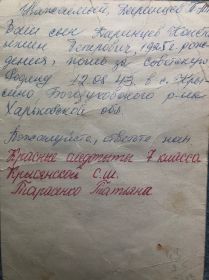 Уважаемый, Каринцев
Ваш сын Каринцев Конст
Петрович, 1925г. рож
дения, погиб за Советскую
Родину 12.08.43. в с.
Богодуховского р-на
Харьковской обл.
Пожалуйста, ответьте нам
Красные следопыты 7 класса
С.Ш.
Тарасенко Татьяна